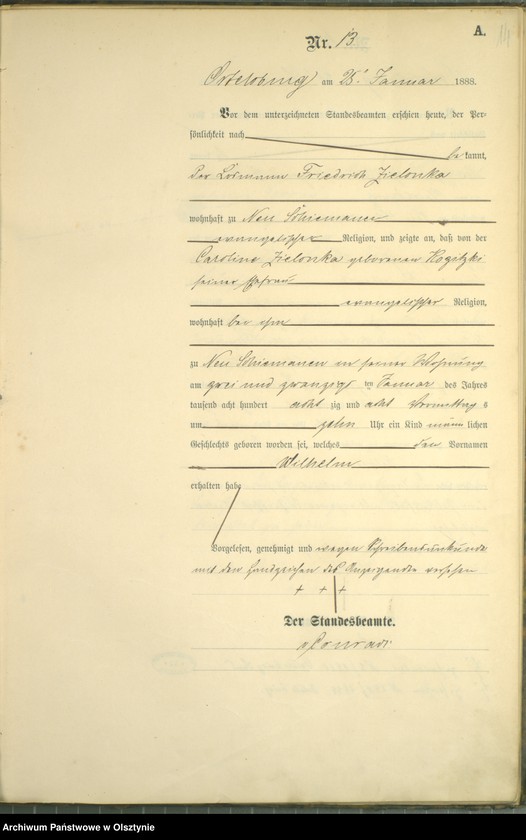 A.
Nr. 13
Ortelsburg am 25. Januar 1888.
Vor dem unterzeichneten Standesbeamten erschien heute, der Per-
sönlichkeit nach
be kannt,
Der Losmann Friedrich Zielonka
wohnhaft zu Neu Schiemanen
evangelischer Religion, und zeigte an, daß von der
Caroline Zielonka geborenen Rogitzki
seiner Ehefrau
evangelischer Religion,
wohnhaft bei ihm
zu Neu Schiemanen in seiner Wohnung
am zwei und zwanzigsten Januar des Jahres
tausend acht hundert acht zig und acht Vormittag s
um zehn Uhr ein Kind männ lichen
Geschlechts geboren worden sei, welches den Vornamen
Wilhelm
erhalten habe
Vorgelesen, genehmigt und wegen Schreibensunkunde
mit den Handzeichen des Anzeigenden versehen
+ + +
Der Standesbeamte.
Conrad
Archiwum Państwowe w Olsztynie